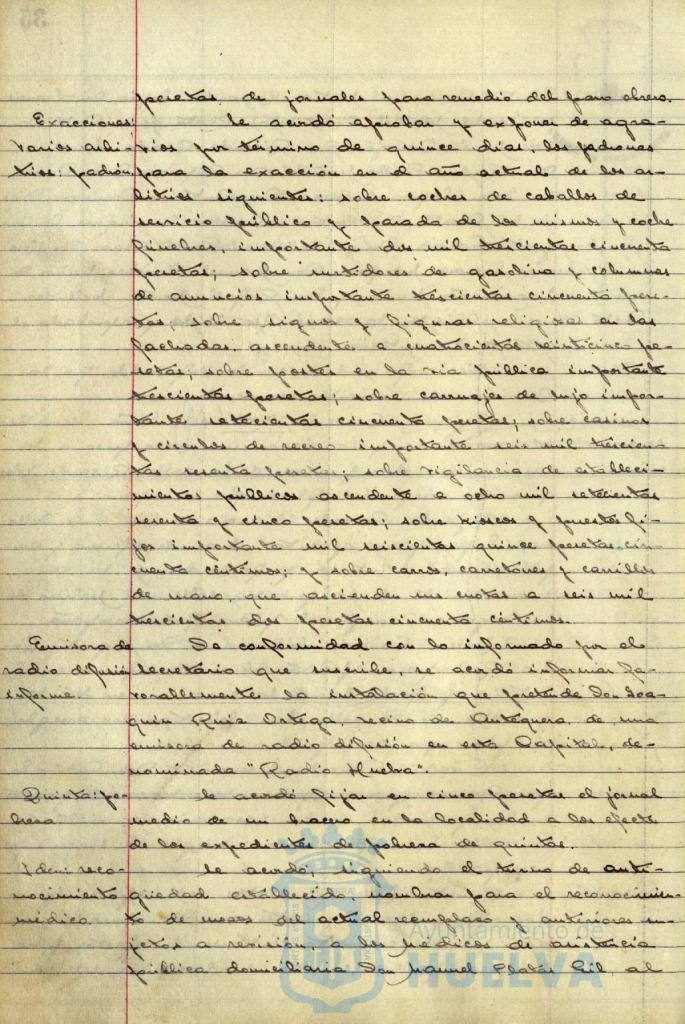 pesetas de jornales para remedio del paro obrero.
Exacciones: Se acordó aprobar y exponer de agra-
varios arbi- vios por término de quince días, los padrones
trios: padrón. para la exacción en el año actual de los ar-
bitrios siguientes: sobre coches de caballos de
servicio público y parada de los mismos y coche
fúnebres, importante dos mil trescientas cincuenta
pesetas; sobre surtidores de gasolina y columnas
de anuncios importante trescientas cincuenta pese-
tas; sobre signos y figuras religiosas en las
fachadas, ascendente a cuatrocientas veinticinco pe-
setas; sobre postes en la vía pública importante
trescientas pesetas; sobre carruajes de lujo impor-
tante setecientas cincuenta pesetas; sobre casinos
y círculos de recreo importante seis mil trescien-
tas sesenta pesetas; sobre vigilancia de estableci-
mientos públicos ascendente a ocho mil setecientas
sesenta y cinco pesetas; sobre kioscos y puestos fi-
jos importante mil seiscientas quince pesetas cin-
cuenta céntimos; y sobre carros, carretones y carrillos
de mano, que ascienden sus cuotas a seis mil
trescientas dos pesetas cincuenta céntimos.
Emisora de De conformidad con lo informado por el
radio difusión secretario que suscribe, se acordó informar fa-
informe. vorablemente la instalación que pretende Don Joa-
quin Ruiz Ortega, vecino de Antequera, de una
emisora de radio difusión en esta Capital, de-
nominada "Radio Huelva".
Quinta: po- Se acordó fijar en cinco pesetas el jornal
breza medio de un bracero en la localidad a los efectos
de los expedientes de pobreza de quintas.
Idem: reco- Se acordó, siguiendo el turno de anti-
nocimiento güedad establecido, nombrar para el reconocimien-
médico to de mozos del actual reemplazo y anteriores su-
jetos a revisión, a los Médicos de asistencia
pública domiciliaria Don Manuel Gil, al
Ayuntamiento de
HUELVA